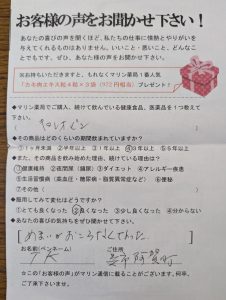 お客様の声をお聞かせ下さい！
あなたの喜びの声を聞くほど、私たちの仕事に情熱とやりがいを
与えてくれるものはありません。いいこと・悪いこと、どんなこ
とでもです。ぜひ、あなた様の声をお聞かせ下さい。
※お持ちいただきますと、もれなくマリン薬局1番人気
「カキ肉エキス粒4粒×3袋（972円相当）プレゼント！
◆マリン薬局でご購入、続けて飲んでいる健康食品、医薬品を1つ教えて
下さい。
◆その商品はどのくらいの期間飲まれていますか？
◆また、その商品を飲み始めた理由、続けている理由は？
①健康維持 ②夜間頻尿 ③ダイエット ④アレルギー疾患
⑤生活習慣病（高血圧・糖尿病・脂質異常症など） ⑥便秘
⑦その他（ ）
◆服用してみて変化はどうですか？
①とても良くなった ②良くなった ③少し良くなった ④分からない
◆あなたの喜びの気持ちをぜひお聞かせて下さい！
めまいがおこらなくなった
お名前(ペンネーム) ご住所
T K
☆この「お客様の声」がマリン通信に載ることがございます。何卒、
ご了承下さいませ。